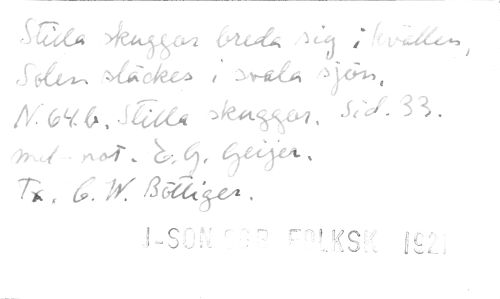 Stilla skuggor breda sig i kvällen,
Solen släckes i svala sjön.
N. 64.b. Stilla skuggor. Sid. 33.
mel-not. E. G. Geijer.
Tx. C. W. Böttiger.
J-SON FOLKSK 1921